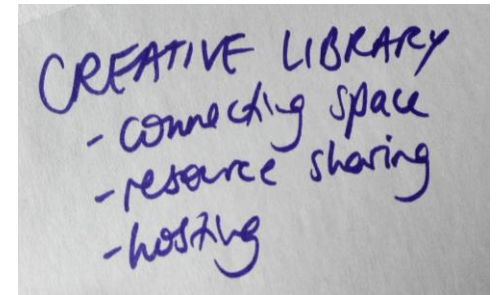 CREATIVE LIBRARY
- connecting space
- resource sharing
- hosting